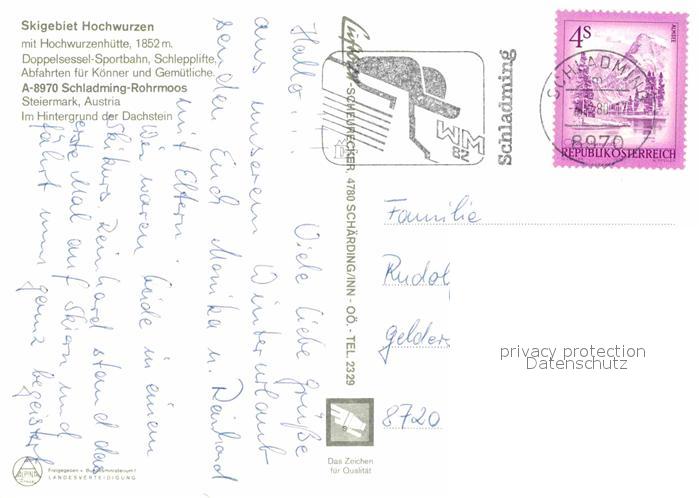 Skigebiet Hochwurzen
mit Hochwurzenhütte, 1852 m.
Doppelsessel-Sportbahn, Schlepplifte,
Abfahrten für Könner und Gemütliche.
A-8970 Schladming-Rohrmoos
Steiermark, Austria
Im Hintergrund der Dachstein
Hallo... Viele liebe Grüße
aus unserem Winterurlaub
senden Euch Monika u. Reinhard
mit Eltern
Wir waren beide in einem
Skikurs. Reinhard stand das
erste Mal auf Skiern und
fährt nun ganz begeistert
SCHEURECKER, 4780 SCHÄRDING/INN - OÖ. - TEL. 2329
WM
82
Schladming
4S
ALMSEE
REPUBLIK ÖSTERREICH
SCHLADMING
8970
Familie
Rudol
gelder
8720
privacy protection
Datenschutz
Das Zeichen
für Qualität
ALPINA
LANDESVERTEIDIGUNG